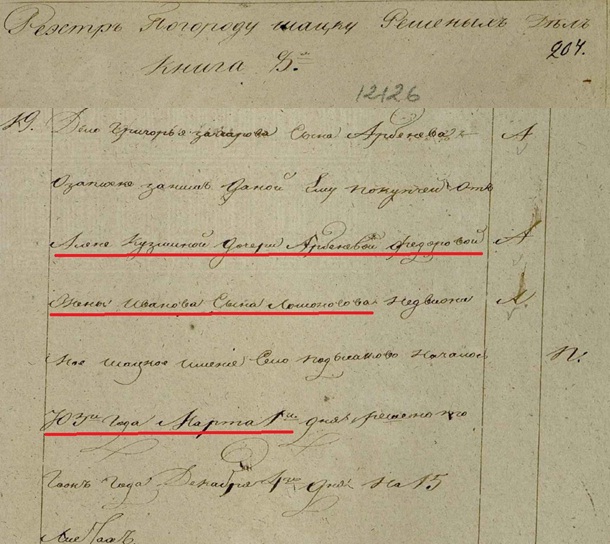 Реэстръ Погороду шацку Решенымъ Дѣламъ
204.
Книга
12126
19. Дело григорья захарова Сына Арбенева А
Озаписке заимъ даной Ему покупчей отъ
Алене кузминой дочери Арбеневой федоровой А
Жены Иванова Сына Ломоносова недвижи А
мое шацкое имение Село подысаково Начелос П:
703го Года Марта 1го дня решено
Года Декабря дня на 15
Листахъ